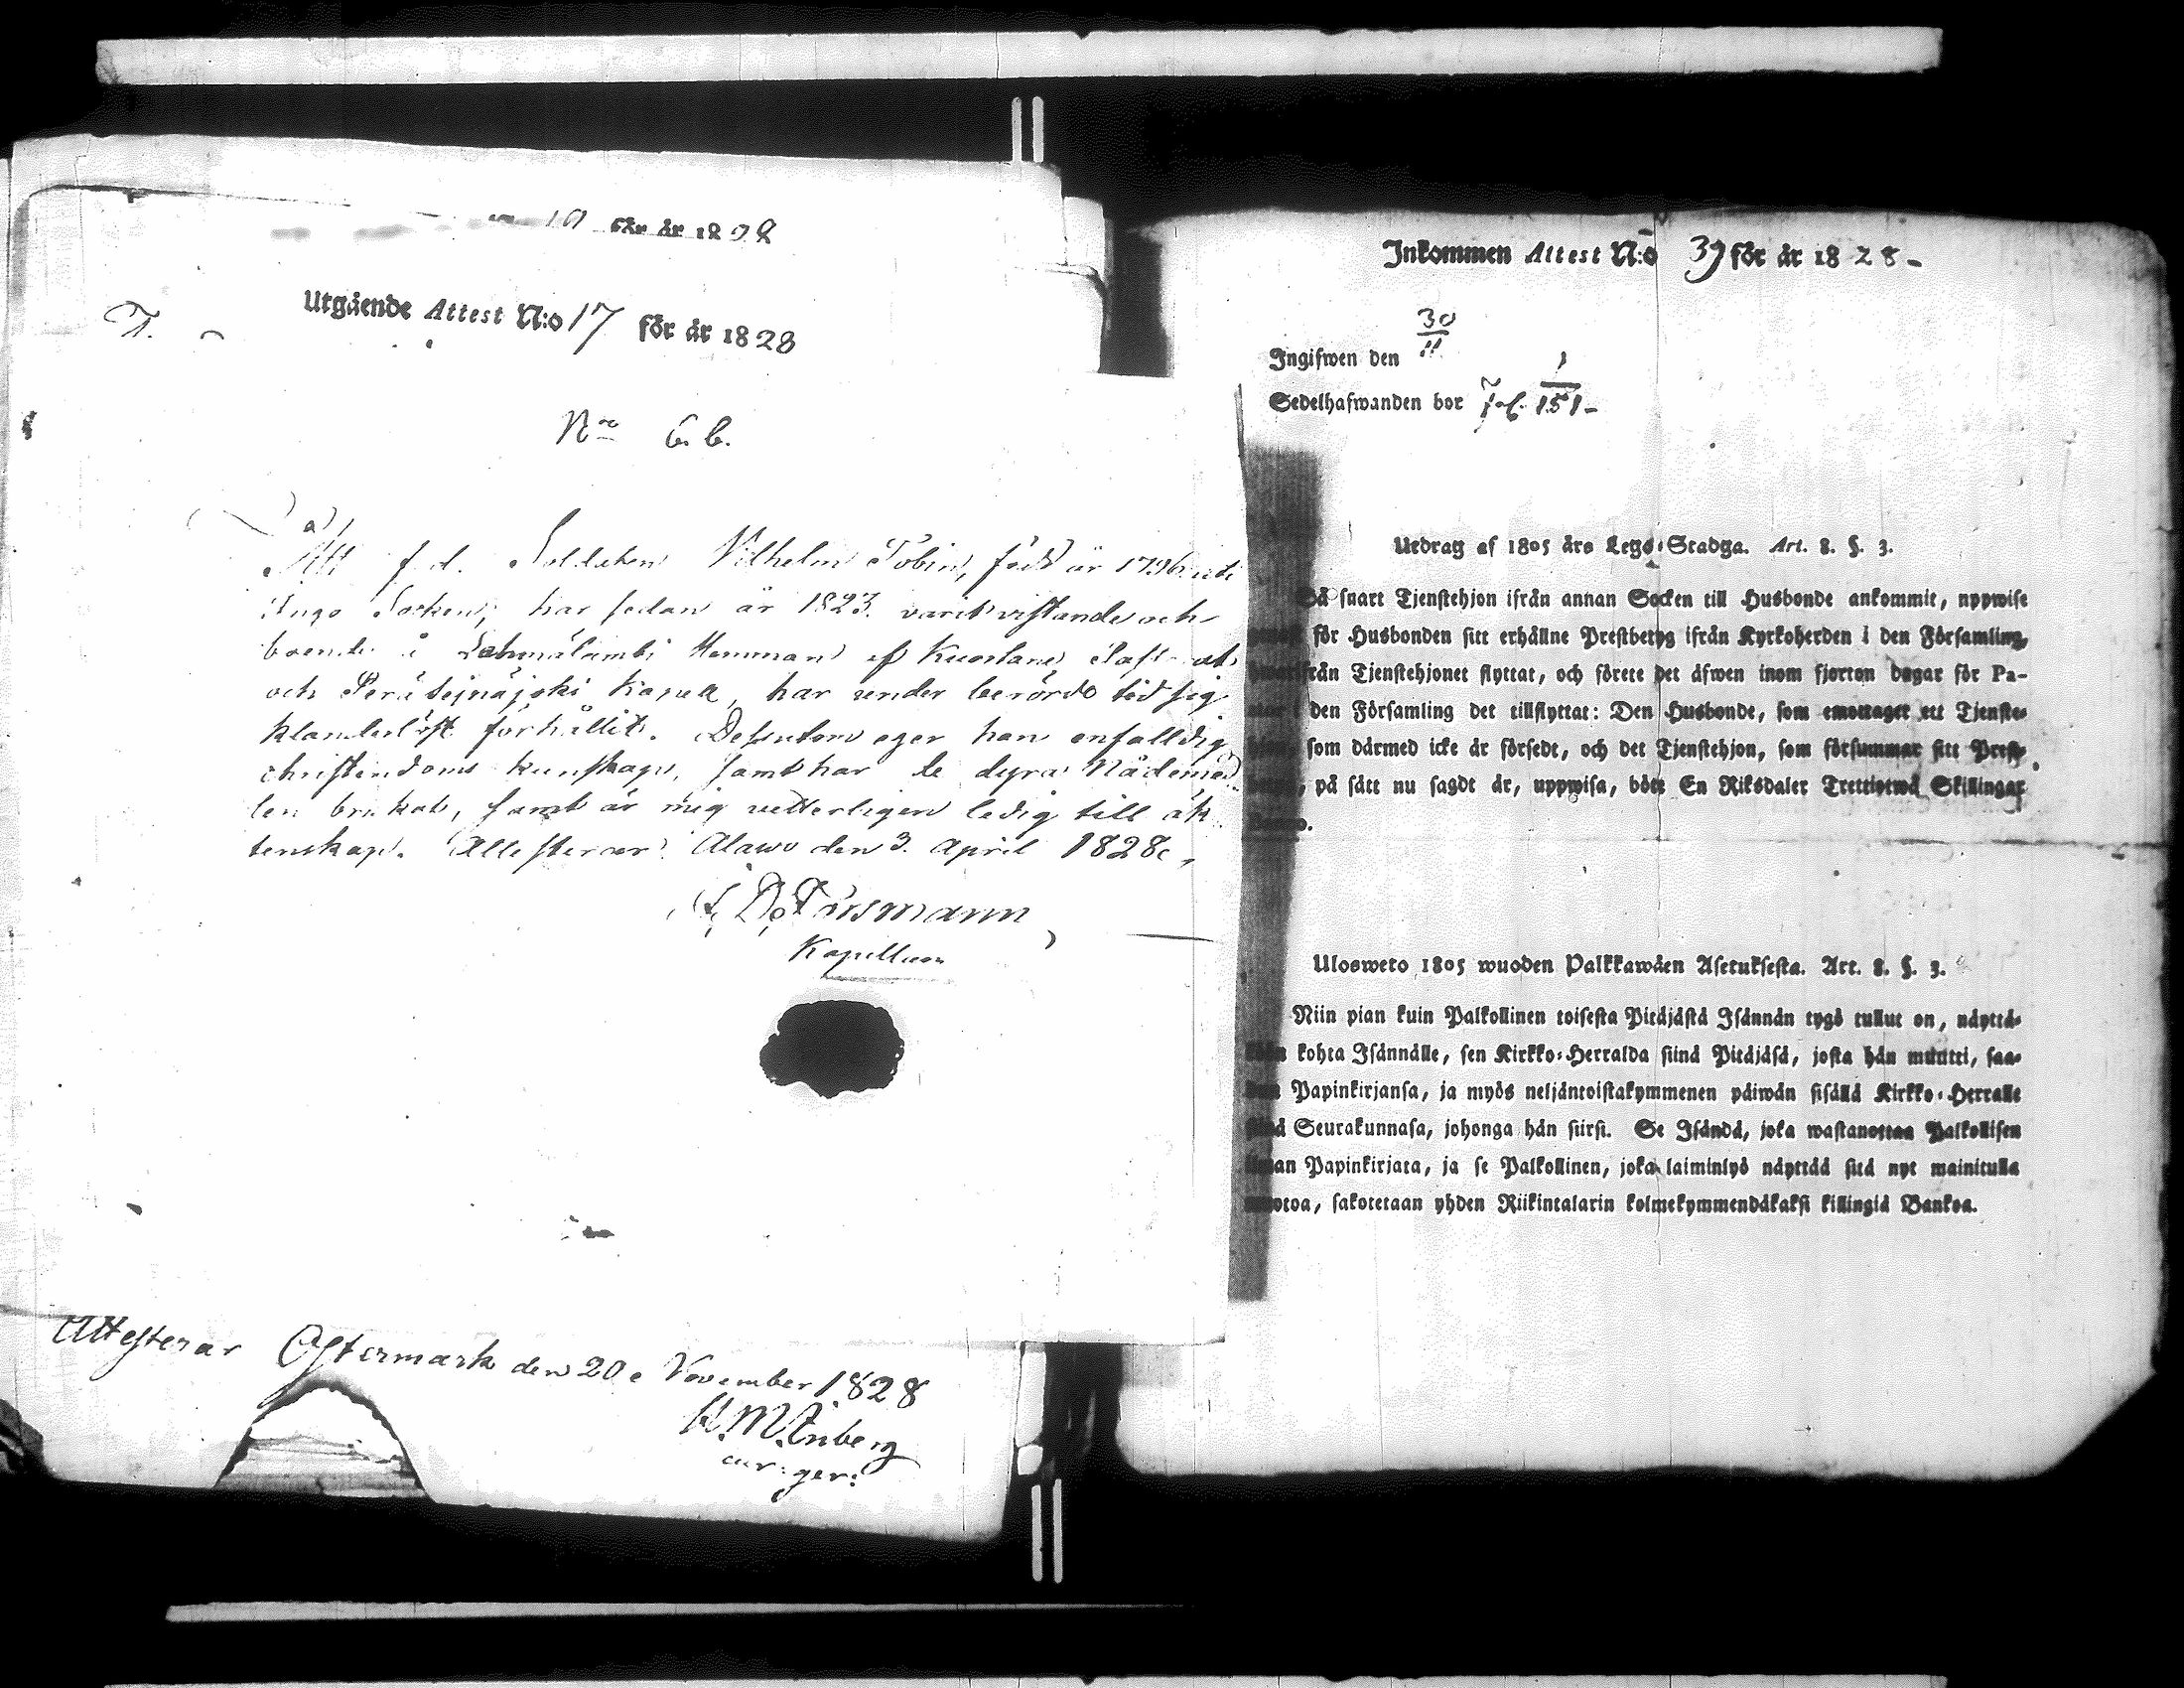 för år 1828
Utgående Attest N:o 17 för år 1828
N:ro 6. b.
Att f. d. Soldaten Wilhelm Tobin, född år 1796 uti
Ingo Socken, har sedan år 1823 varit vistande och
boende å Hemman af Kuortane Past-at
och Peräsejnäjoki Kapell, har under berörde tid sig
klanderlöst förhållit. Dessutom eger han enfalldig
christendoms kunskap, samt har de dyra Nådemed
len brukat, samt är mig vetterligen ledig till äk
tenskap. Attesterar Alawo den 3. April 1828,
Kapellan
Attesterar Östermark den 20 e November 1828
cur: ger:
Inkommen Attest N:o 39 för år 1828-
Ingifwen den 30/11
Sedelhafwanden bor Fol. 1/151-
Utdrag af 1805 års Lego-Stadga. Art. 8. §. 3.
Så snart Tjenstehjon ifrån annan Socken till Husbonde ankommit, uppwise
för Husbonden sitt erhållne Prestbetyg ifrån Kyrkoherden i den Församling,
Tjenstehjonet flyttat, och förete det äfwen inom fjorton dagar för Pa-
den Församling det tillflyttat: Den Husbonde, som emottager ett Tjenste-
som därmed icke är försedt, och det Tjenstehjon, som försummar sitt Prest-
på sätt nu sagdt är, uppwisa, böte En Riksdaler Trettiotwå Skillingar
Ulosweto 1805 wuoden Palkkawäen Asetuksesta. Art. 8. §. 3.
Niin pian kuin Palkollinen toisesta Pitäjästä Isännän tygö tullut on, näyttä-
kohta Isännälle, sen Kirkko-Herralda siinä Pitäjäsä, josta hän muutti, saa-
Papinkirjansa, ja myös neljäntoistakymmenen päiwän sisällä Kirkko-Herralle
Seurakunnasa, johonga hän siirsi. Se Isändä, joka wastanottaa Palkollisen
Papinkirjata, ja se Palkollinen, joka laiminlyö näyttää sitä nyt mainitulla
sakotetaan yhden Riikintalarin kolmekymmendäkaksi killingiä Bankoa.